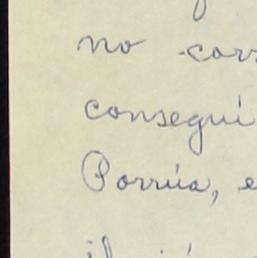 no cor
consegui
Porrúa, e